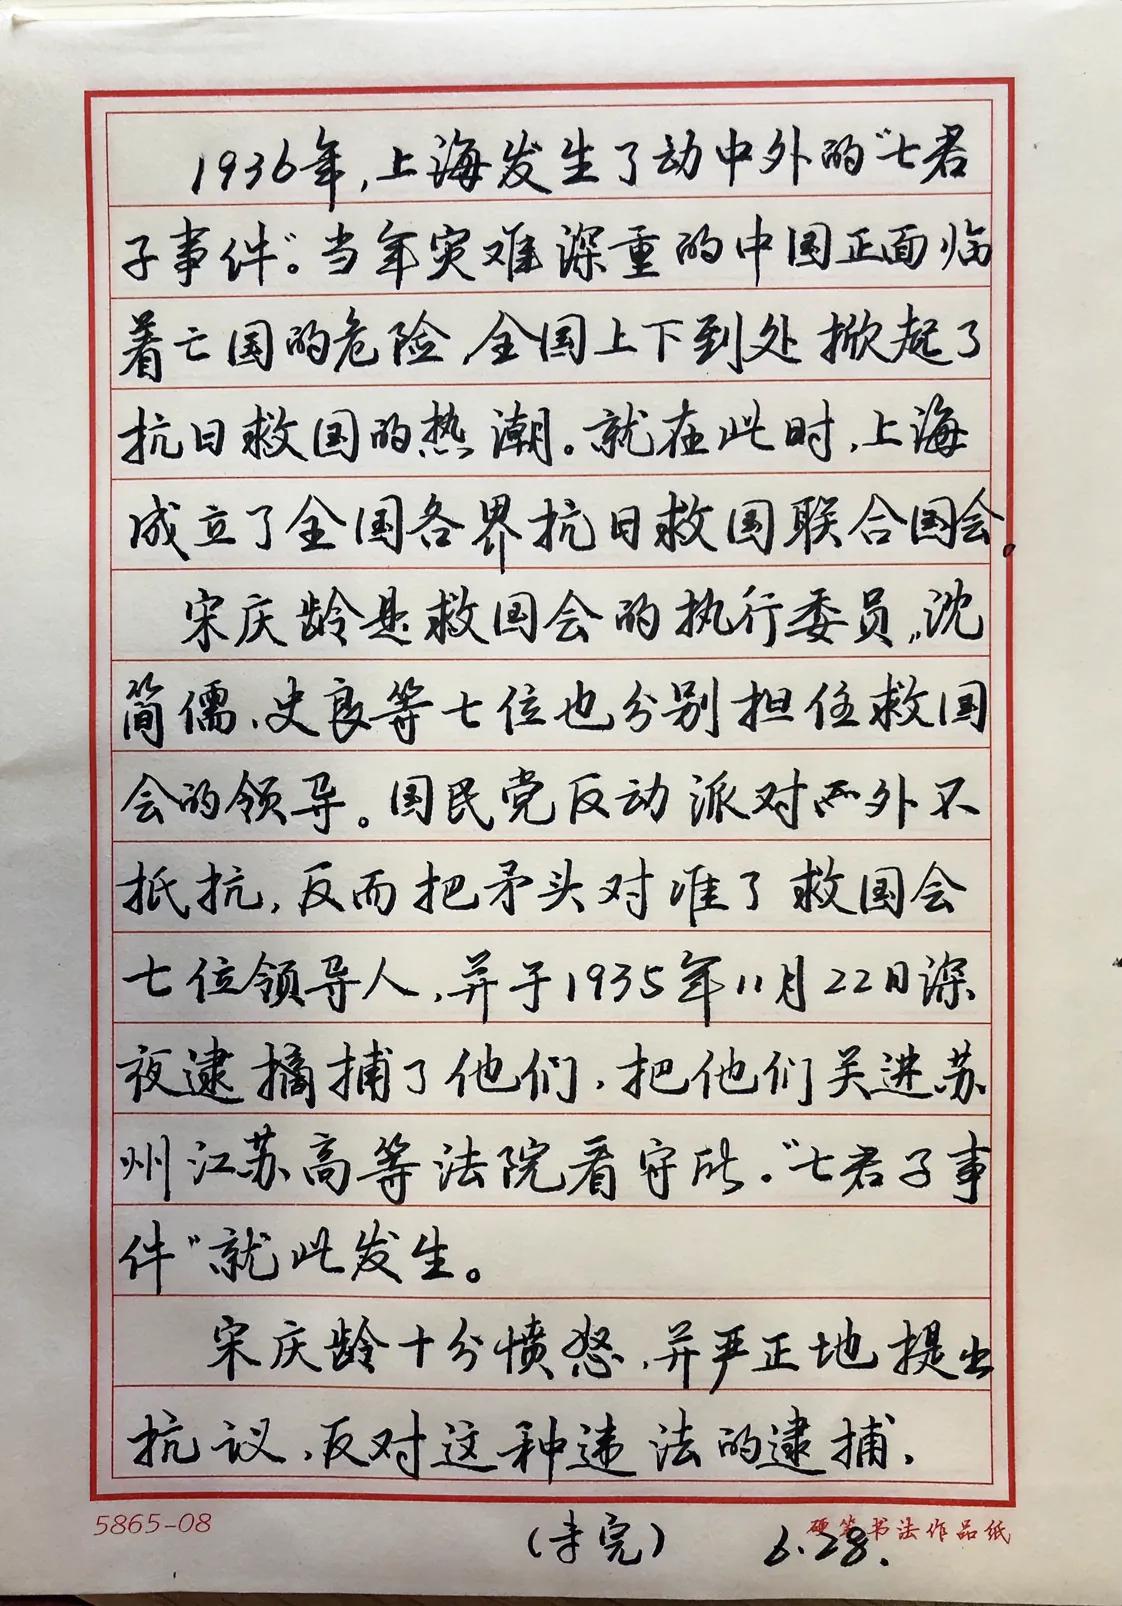 1936年,上海发生了动中外的“七君
子事件”。当年灾难深重的中国正面临
着亡国的危险,全国上下到处掀起了
抗日救国的热潮。就在此时,上海
成立了全国各界抗日救国联合国会。
宋庆龄是救国会的执行委员,沈
简儒、史良等七位也分别担任救国
会的领导。国民党反动派对外不
抵抗,反而把矛头对准了救国会
七位领导人,并于1935年11月22日深
夜逮捕了他们,把他们关进苏
州江苏高等法院看守所。“七君子事
件”就此发生。
宋庆龄十分愤怒,并严正地提出
抗议,反对这种违法的逮捕,
5865-08
硬笔书法作品纸
(未完) 6.28.